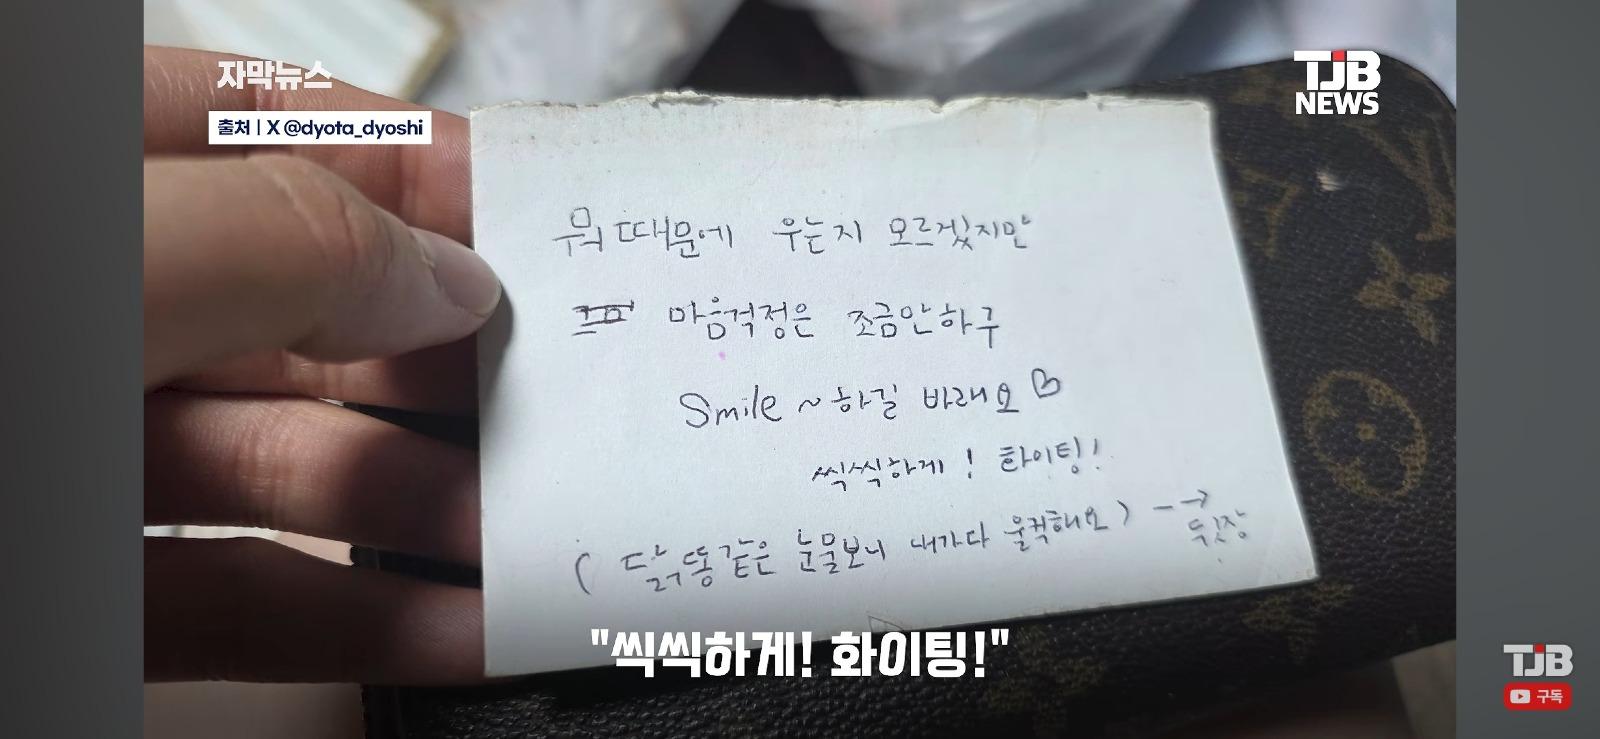 자막뉴스
출처 | X @dyota_dyoshi
TJB
NEWS
뭐 때문에 우는지 모르겠지만
마음걱정은 조금안하구
Smile ~ 하길 바래요 ♡
씩씩하게! 화이팅!
( 닭똥같은 눈물보니 내가다 울컥해요 ) →
뒷장
"씩씩하게! 화이팅!"
TJB
구독